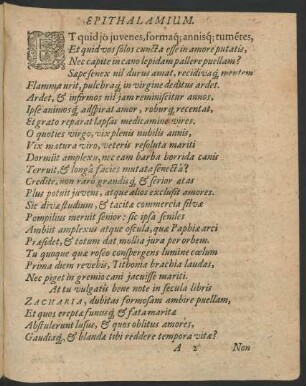 EPITHALAMIUM.
ET quid jō juvenes, formaq́; annisq́; tumētes,
Et quid vos solos cuncta esse in amore putatis,
Nec capite in cano lepidam pallere puellam?
Sæpe senex nil durus amat, recidivaq́; mentem
Flamma urit, pulchraq́; in virgine deditus ardet.
Ardet, & infirmos nil jam reminiscitur annos.
Ipse animosq́; adspirat amor, roburq́; recentat,
Et grato reparat lapsas medicamine vires.
O quoties virgo, vix plenis nubilis annis,
Vix matura viro, veteris resoluta mariti
Dormiit amplexu, nec eam barba horrida canis
Terruit, & longâ facies mutata senectâ?
Credite, non rarò grandisq́; & serior ætas
Plus potuit juveni, atque alios exclusit amores.
Sic divæ studium, & tacitæ commercia silvæ
Pompilius meruit senior: sic ipsa seniles
Ambiit amplexus atque oscula, quæ Paphiæ arci
Præsidet, & totum dat mollia jura per orbem.
Tu quoque quæ roseo conspergens lumine cœlum
Prima diem revehis, Tithonia brachia laudas,
Nec piget in gremio cani jacuisse mariti.
At tu vulgatis bene note in secula libris
ZACHARIA, dubitas formosam ambire puellam,
Et quos erepta funusq́; & fata marita
Abstulerunt lusus, & quos oblitus amores,
Gaudiaq́; & blanda tibi reddere tempora vita?
A 2 Non